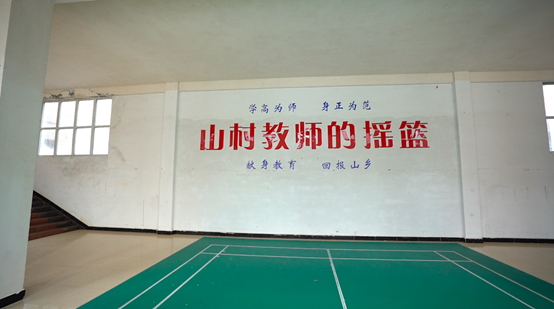 学高为师 身正为范
山村教师的摇篮
献身教育 回报山乡